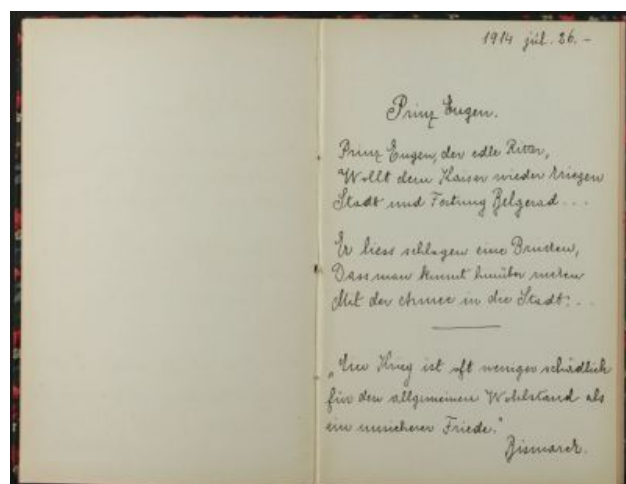 1914 júl. 26. –
Prinz Eugen.
Prinz Eugen, der edle Ritter,
Wollt dem Kaiser wieder kriegen
Stadt und Festung Belgerad...
Er liess schlagen eine Brucken,
Dass man kunnt hinüber rucken
Mit der Armee in die Stadt:..
„Ein Krieg ist oft weniger schädlich
für den allgemeinen Wohlstand als
ein unsicherer Friede."
Bismarck.